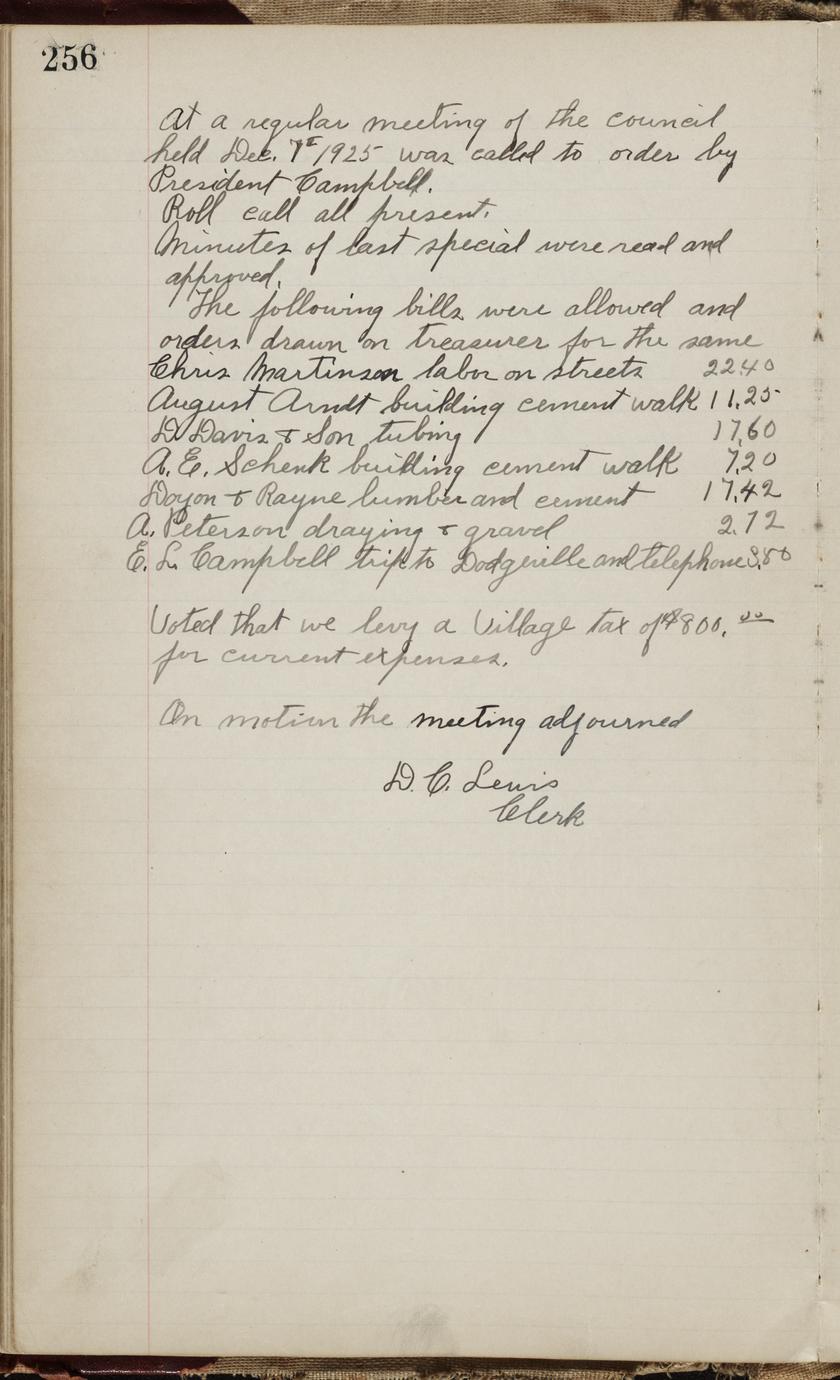 256
At a regular meeting of the council
held Dec. 7th 1925 was called to order by
President Campbell.
Roll call all present.
Minutes of last special were read and
approved.
The following bills were allowed and
orders drawn on treasurer for the same
Chris Martinson labor on streets 22.40
August Arndt building cement walk 11.25
D. Davis & Son tubing 17.60
A. E. Schenk building cement walk 7.20
Doyon & Rayne lumber and cement 17.42
A. Peterson draying & gravel 2.72
E. L. Campbell trip to Dodgeville and telephone 3.80
Voted that we levy a Village tax of $800.00
for current expenses.
On motion the meeting adjourned
D. C. Lewis
Clerk